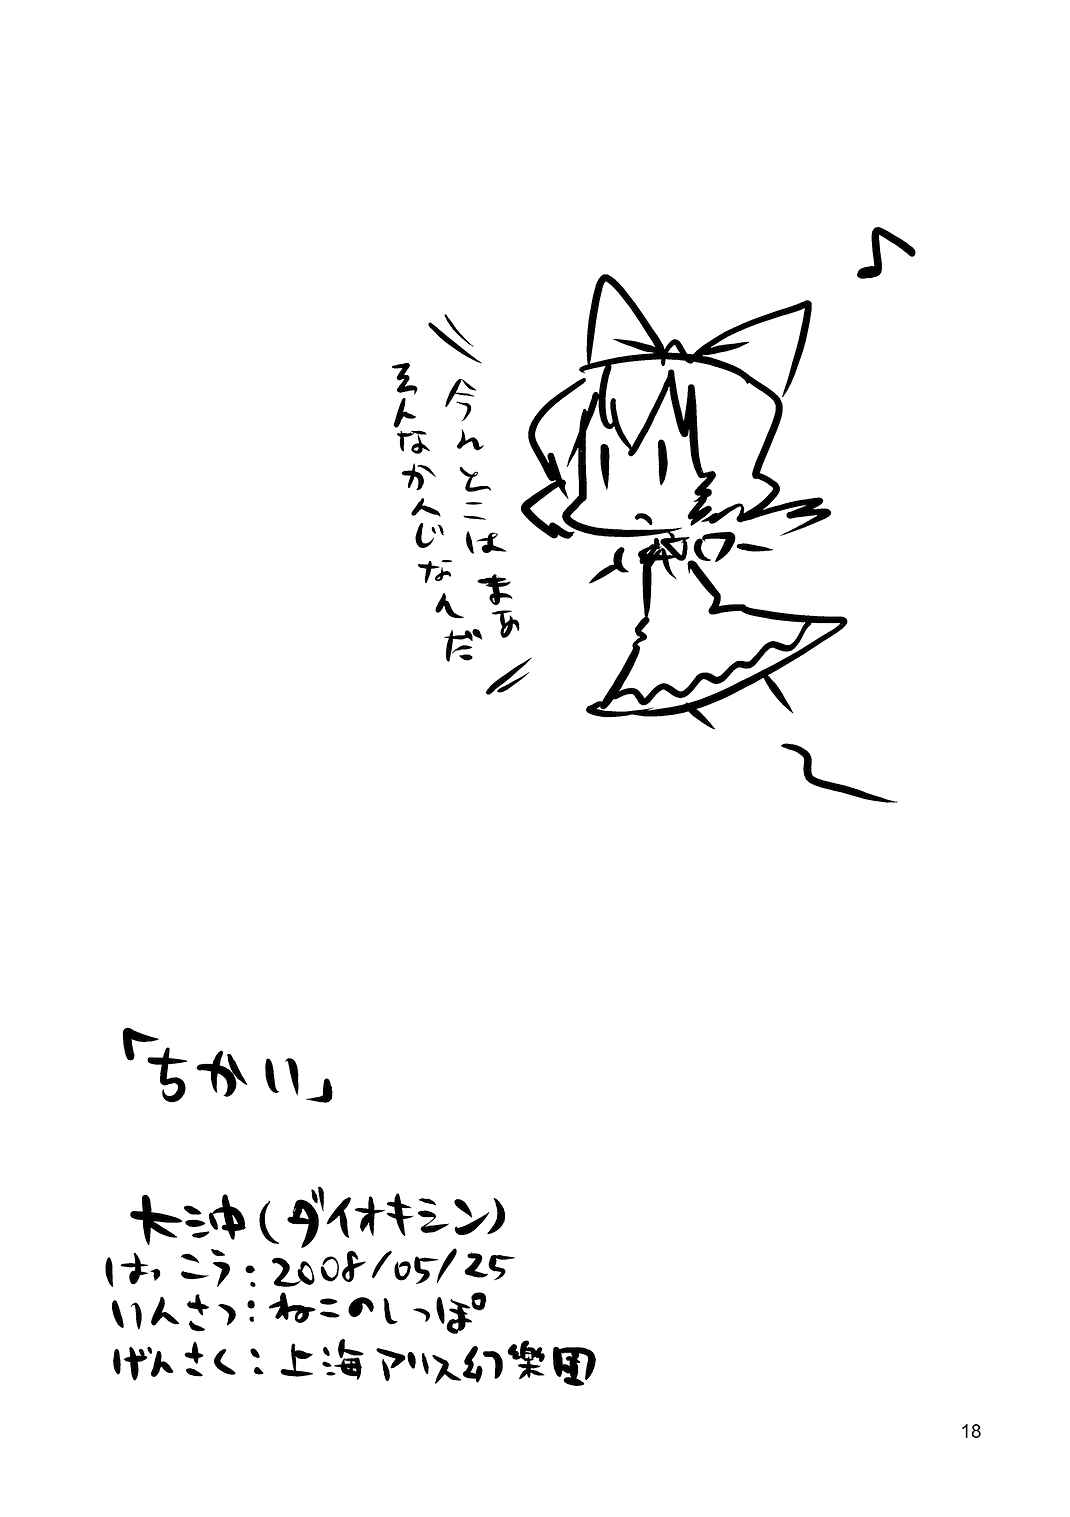 ♪
今んとこは まぁ
そんなかんじなんだ
「ちかい」
大沖(ダイオキシン)
はっこう:2008/05/25
いんさつ:ねこのしっぽ
げんさく:上海アリス幻樂団
18